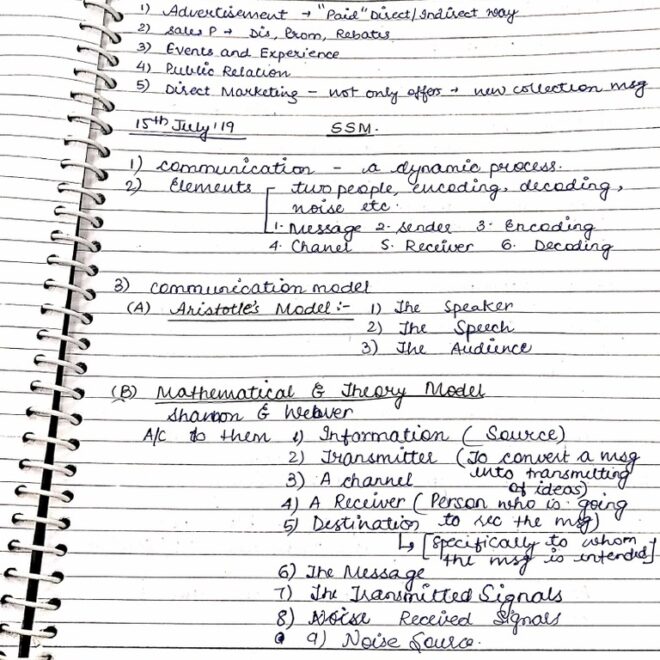 1) Advertisement → "Paid" Direct/Indirect way
2) Sales P → Dis, Prom, Rebates
3) Events and Experience
4) Public Relation
5) Direct Marketing – not only offers → new collection msg
15th July '19 SSM.
1) Communication – a dynamic process.
2) Elements two people, encoding, decoding,
noise etc.
1. Message 2. Sender 3. Encoding
4. Chanel 5. Receiver 6. Decoding
3) Communication model
(A) Aristotle's Model :- 1) The Speaker
2) The Speech
3) The Audience
(B) Mathematical & Theory Model
Shannon & Weaver
A/C to them 1) Information (Source)
2) Transmitter (To convert a msg
3) A channel into transmitting
of ideas)
4) A Receiver (Person who is going
5) Destination to rec the msg)
↳ [Specifically to whom
the msg is intended]
6) The Message
7) The Transmitted Signals
8) Noise Received Signals
9) Noise Source.